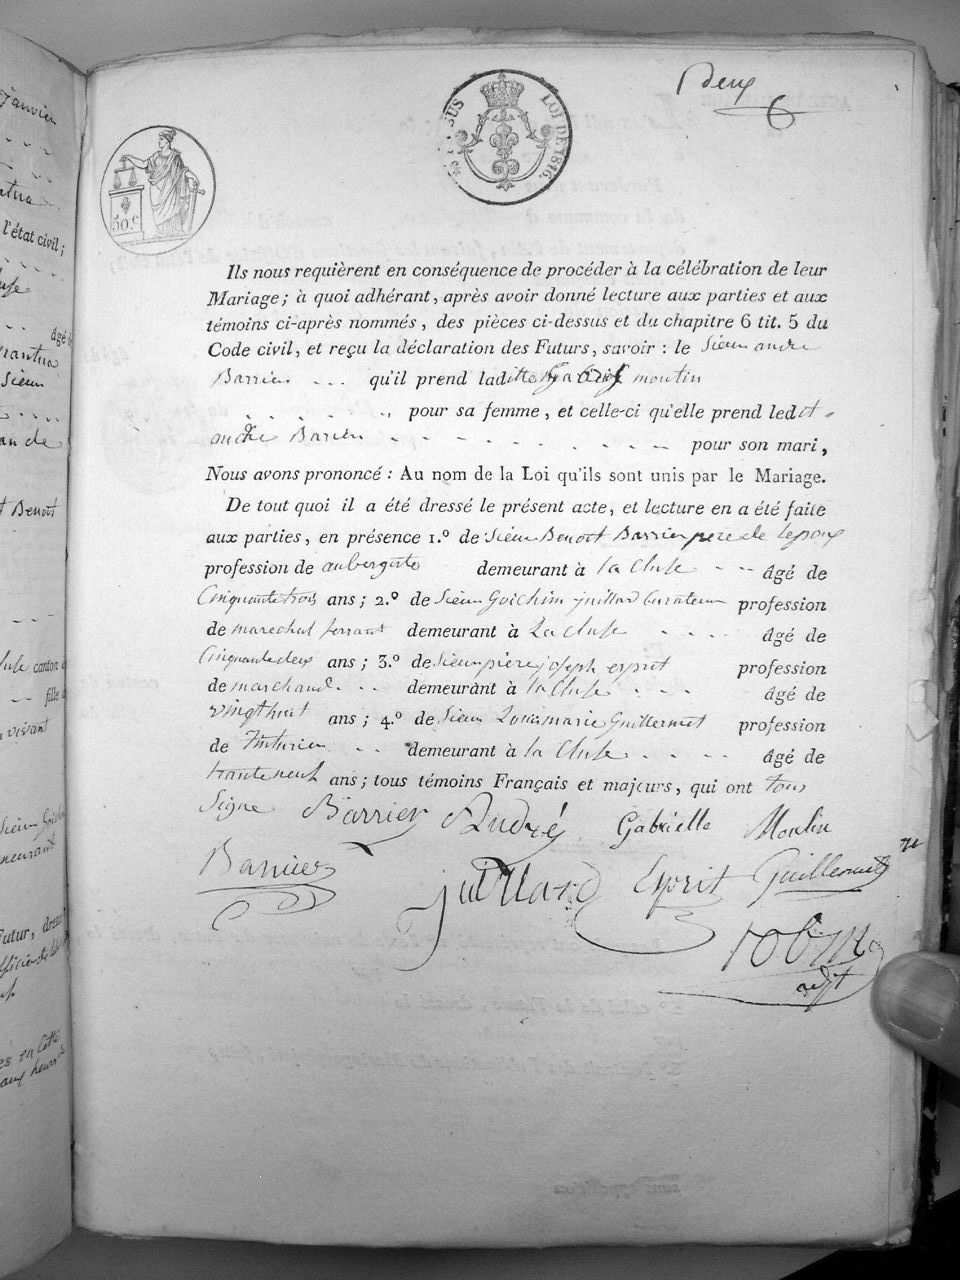 Janvier
Deux
6
EN SUS
LOI DE 1816.
50.c
l'état civil;
âgé
Sieur
Benoit
canton
fille
vivant
Futur,
Ils nous requièrent en conséquence de procéder à la célébration de leur
Mariage; à quoi adhérant, après avoir donné lecture aux parties et aux
témoins ci-après nommés, des pièces ci-dessus et du chapitre 6 tit. 5 du
Code civil, et reçu la déclaration des Futurs, savoir : le Sieur andre
Barrier qu'il prend laditte moulin
pour sa femme, et celle-ci qu'elle prend ledit
andre Barrier pour son mari,
Nous avons prononcé : Au nom de la Loi qu'ils sont unis par le Mariage.
De tout quoi il a été dressé le présent acte, et lecture en a été faite
aux parties, en présence 1.º de Sieur Benoit Barrier pere de lepoux
profession de aubergiste demeurant à la Cluse âgé de
Cinquante trois ans ; 2.º de Sieur Goichim juillard Curateur profession
de marechal ferrant demeurant à La cluse âgé de
Cinquante deux ans ; 3.º de Sieur piere joseph esprit profession
de marchand demeurant à la Cluse âgé de
vingt huit ans ; 4.º de Sieur Louis marie Guillermet profession
de Tinturier demeurant à la Cluse âgé de
trante neuf ans ; tous témoins Français et majeurs, qui ont tous
Signe Barrier André Gabrielle Moulin
Barrier juillard Esprit Guillermet
robin
adjt